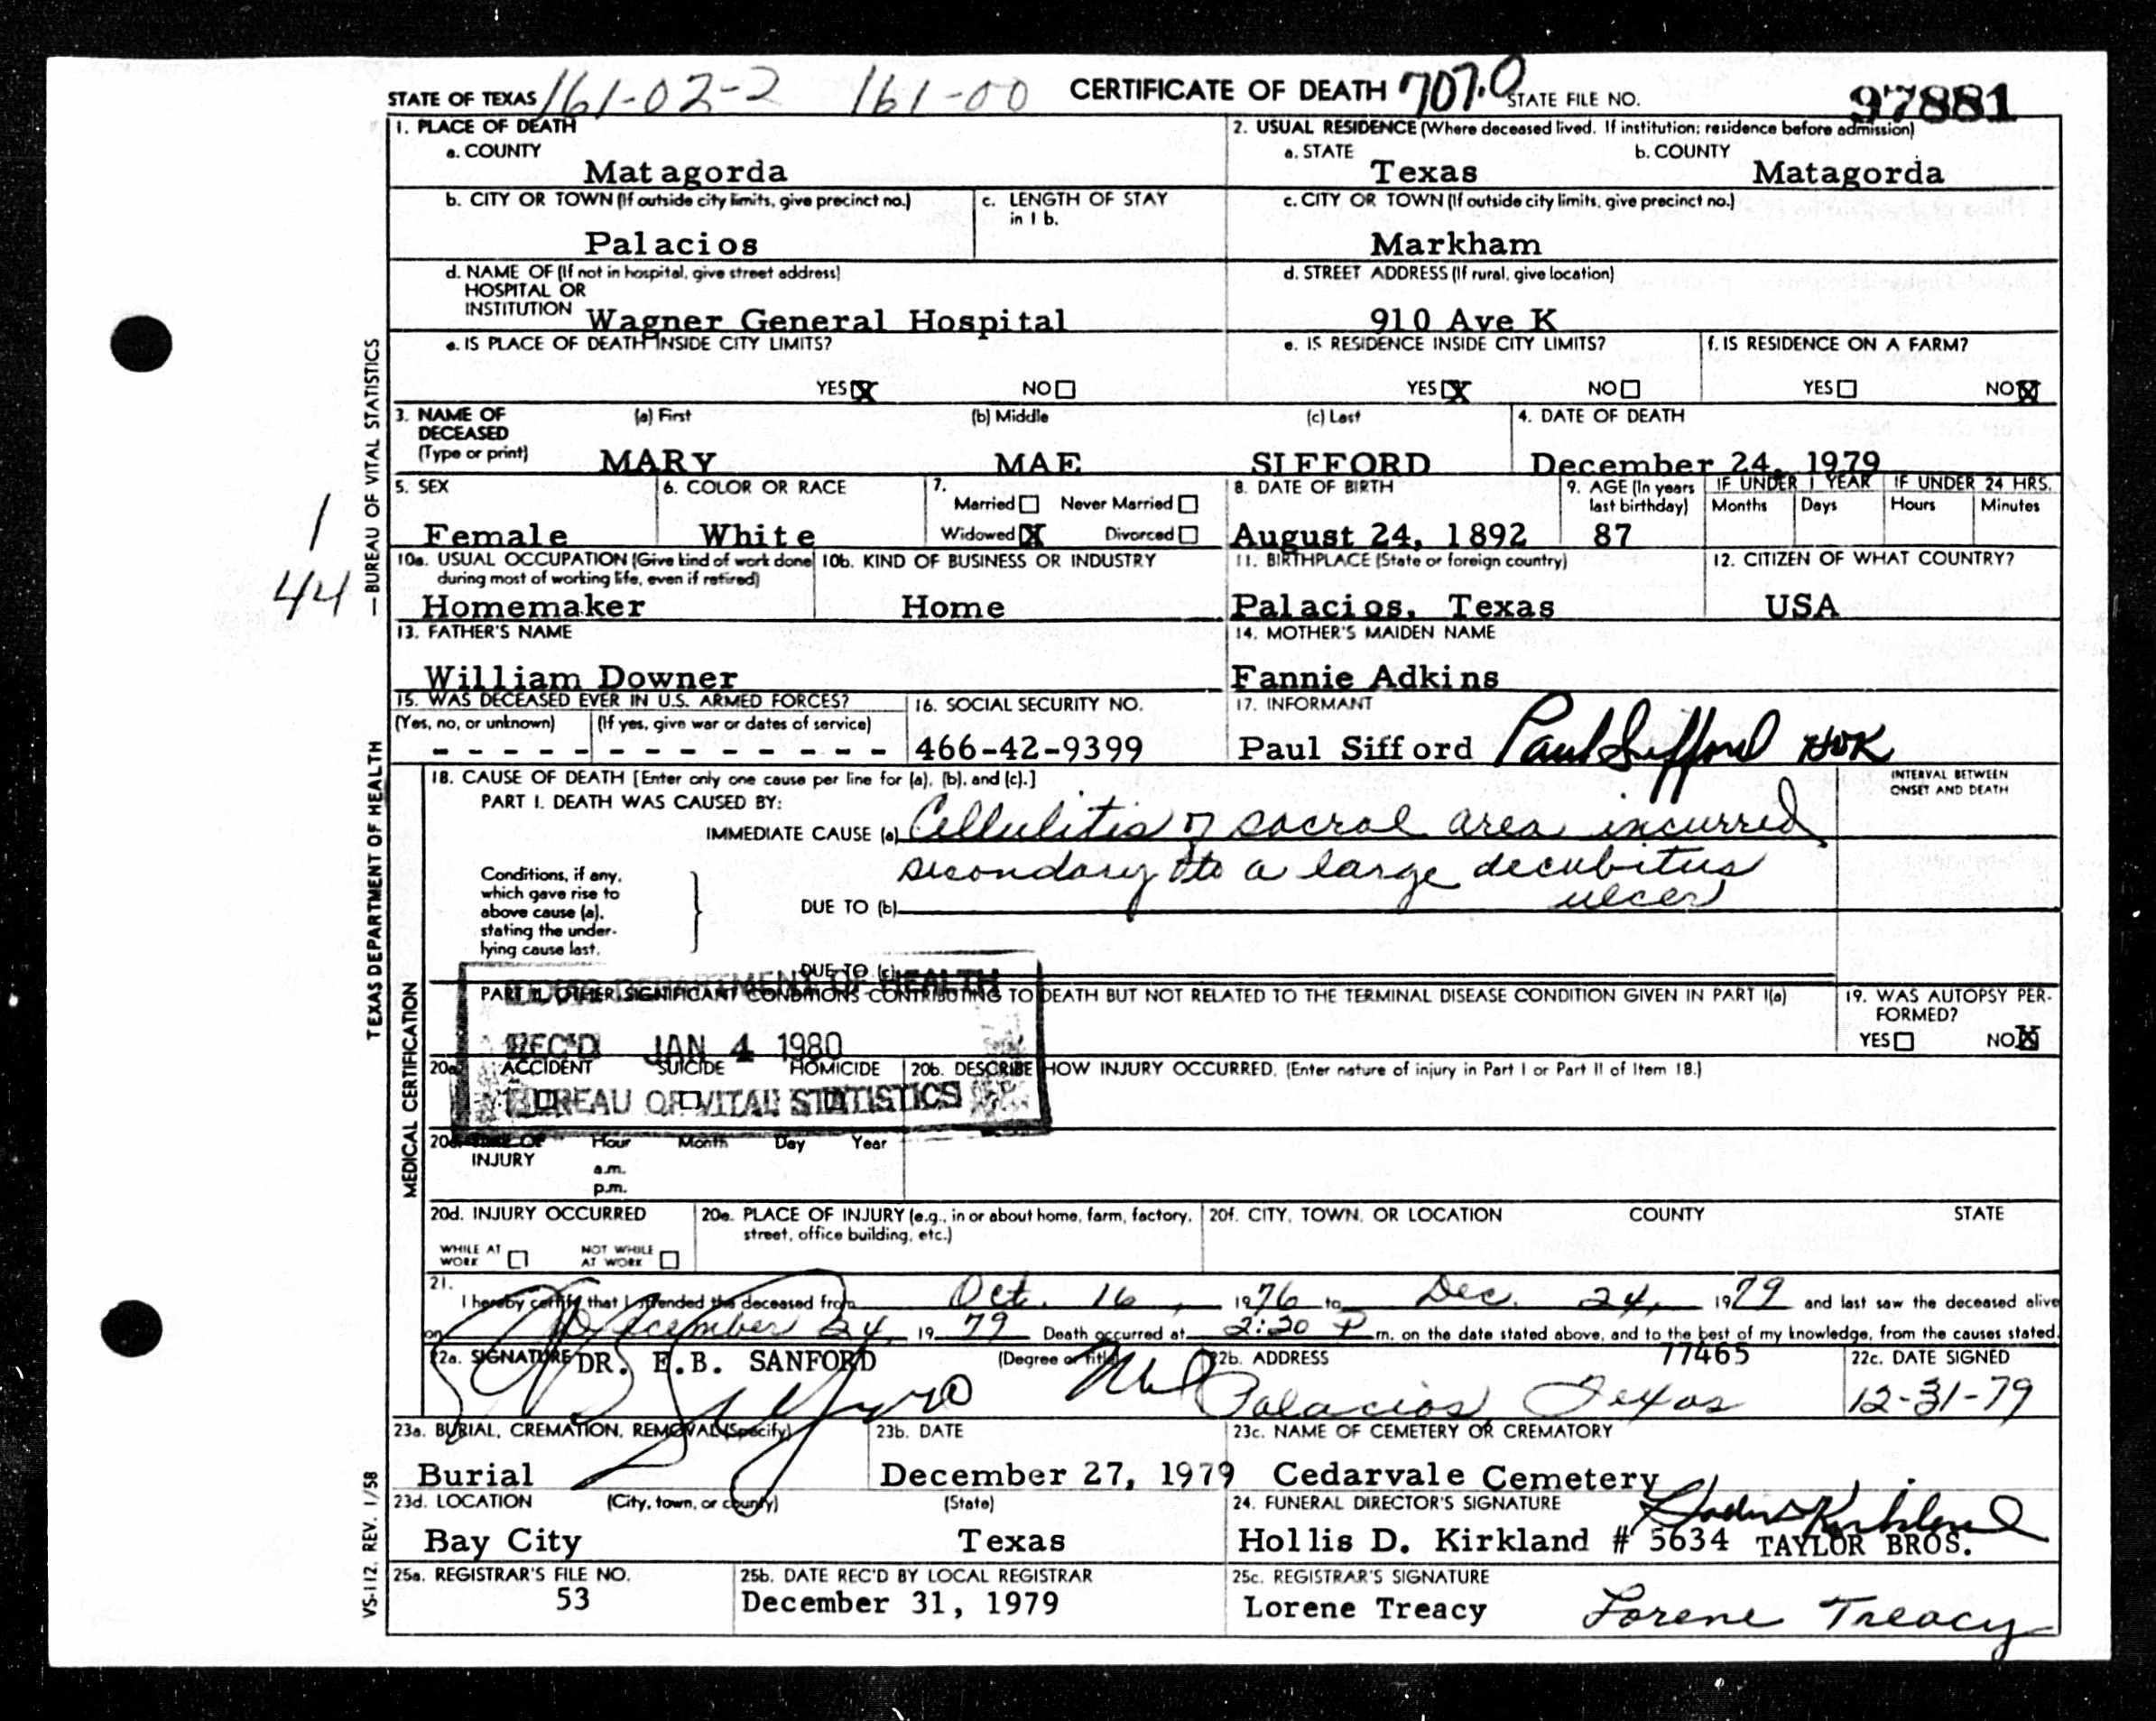 STATE OF TEXAS 161-02-2 161-00 CERTIFICATE OF DEATH 707.0 STATE FILE NO. 97881
1. PLACE OF DEATH
a. COUNTY
Matagorda
2. USUAL RESIDENCE (Where deceased lived. If institution: residence before admission)
a. STATE b. COUNTY
Texas Matagorda
b. CITY OR TOWN (If outside city limits, give precinct no.)
Palacios
c. LENGTH OF STAY
in 1 b.
c. CITY OR TOWN (If outside city limits, give precinct no.)
Markham
d. NAME OF (If not in hospital, give street address)
HOSPITAL OR
INSTITUTION Wagner General Hospital
d. STREET ADDRESS (If rural, give location)
910 Ave K
e. IS PLACE OF DEATH INSIDE CITY LIMITS?
YES X NO
e. IS RESIDENCE INSIDE CITY LIMITS?
YES X NO
f. IS RESIDENCE ON A FARM?
YES NO X
3. NAME OF
DECEASED
(Type or print)
(a) First (b) Middle (c) Last
MARY MAE SIFFORD
4. DATE OF DEATH
December 24, 1979
5. SEX
Female
6. COLOR OR RACE
White
7.
Married Never Married
Widowed X Divorced
8. DATE OF BIRTH
August 24, 1892
9. AGE (In years
last birthday)
87
IF UNDER 1 YEAR
Months Days
IF UNDER 24 HRS.
Hours Minutes
10a. USUAL OCCUPATION (Give kind of work done
during most of working life, even if retired)
Homemaker
10b. KIND OF BUSINESS OR INDUSTRY
Home
11. BIRTHPLACE (State or foreign country)
Palacios, Texas
12. CITIZEN OF WHAT COUNTRY?
USA
13. FATHER'S NAME
William Downer
14. MOTHER'S MAIDEN NAME
Fannie Adkins
15. WAS DECEASED EVER IN U.S. ARMED FORCES?
(Yes, no, or unknown) (If yes, give war or dates of service)
- - - - - - - - - - - - - -
16. SOCIAL SECURITY NO.
466-42-9399
17. INFORMANT
Paul Sifford Paul Sifford
18. CAUSE OF DEATH [Enter only one cause per line for (a), (b), and (c).]
PART I. DEATH WAS CAUSED BY:
INTERVAL BETWEEN
ONSET AND DEATH
IMMEDIATE CAUSE (a) Cellulitis of sacral area incurred
secondary to a large decubitus
ulcer
Conditions, if any,
which gave rise to
above cause (a),
stating the under-
lying cause last.
DUE TO (b)
DUE TO (c)
PART II. OTHER SIGNIFICANT CONDITIONS CONTRIBUTING TO DEATH BUT NOT RELATED TO THE TERMINAL DISEASE CONDITION GIVEN IN PART I(a)
19. WAS AUTOPSY PER-
FORMED?
YES NO X
DEPARTMENT OF HEALTH
REC'D JAN 4 1980
BUREAU OF VITAL STATISTICS
20a. ACCIDENT SUICIDE HOMICIDE
20b. DESCRIBE HOW INJURY OCCURRED. (Enter nature of injury in Part I or Part II of Item 18.)
20c. TIME OF
INJURY
Hour Month Day Year
a.m.
p.m.
20d. INJURY OCCURRED
WHILE AT
WORK
NOT WHILE
AT WORK
20e. PLACE OF INJURY (e.g., in or about home, farm, factory,
street, office building, etc.)
20f. CITY, TOWN, OR LOCATION COUNTY STATE
21.
I hereby certify that I attended the deceased from Oct. 16, 1976 to Dec. 24, 1979 and last saw the deceased alive
on December 24, 19 79 Death occurred at 2:30 P m. on the date stated above, and to the best of my knowledge, from the causes stated.
22a. SIGNATURE DR. E.B. SANFORD (Degree or Title)
22b. ADDRESS 77465
Palacios Texas
22c. DATE SIGNED
12-31-79
23a. BURIAL, CREMATION, REMOVAL (Specify)
Burial
23b. DATE
December 27, 1979
23c. NAME OF CEMETERY OR CREMATORY
Cedarvale Cemetery
23d. LOCATION (City, town, or county) (State)
Bay City Texas
24. FUNERAL DIRECTOR'S SIGNATURE
Hollis D. Kirkland # 5634 TAYLOR BROS.
25a. REGISTRAR'S FILE NO.
53
25b. DATE REC'D BY LOCAL REGISTRAR
December 31, 1979
25c. REGISTRAR'S SIGNATURE
Lorene Treacy Lorene Treacy
1
44
TEXAS DEPARTMENT OF HEALTH — BUREAU OF VITAL STATISTICS
MEDICAL CERTIFICATION
VS-112, REV. 1/58